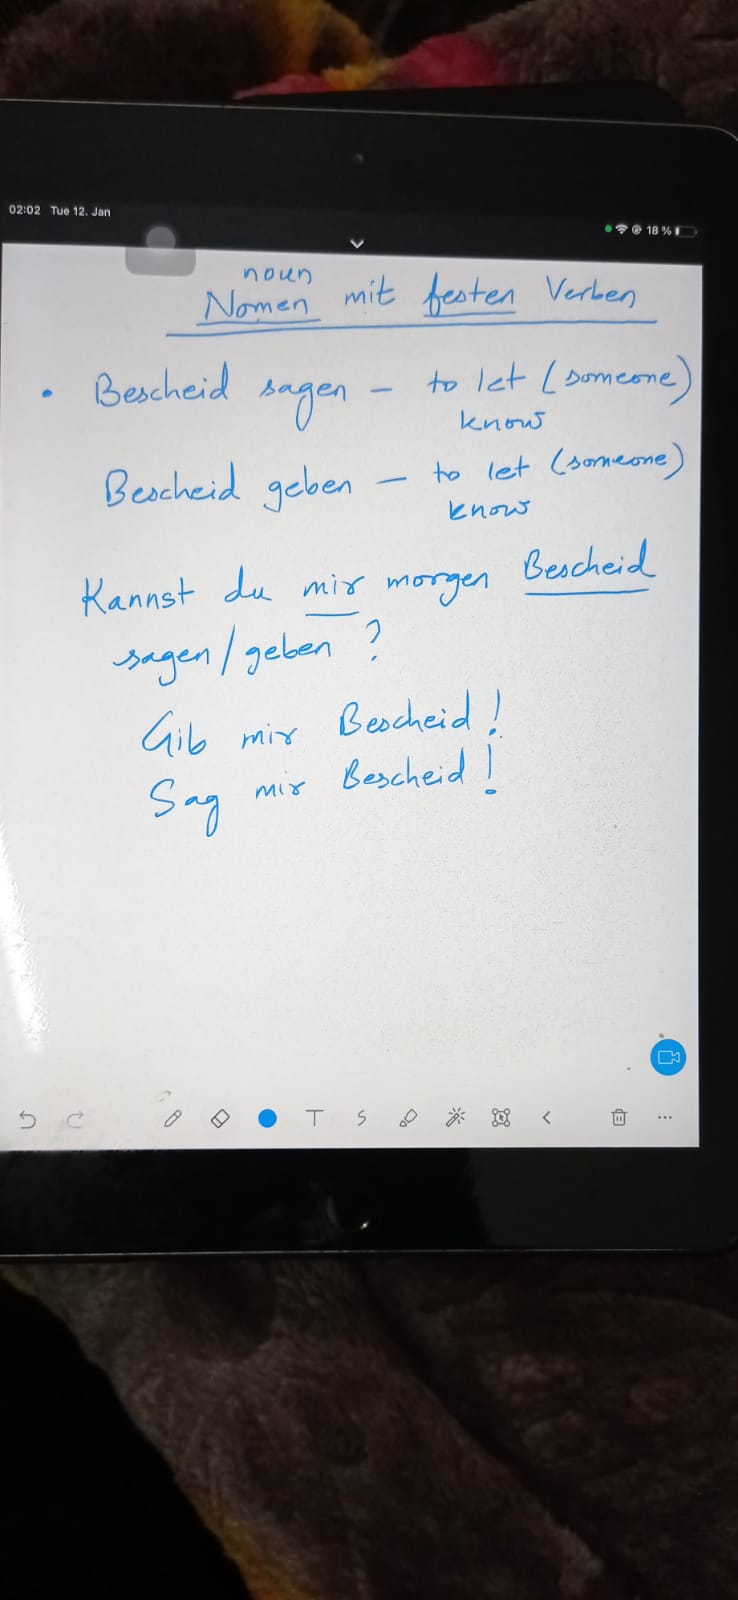 02:02 Tue 12. Jan
18 %
noun
Nomen mit festen Verben
• Bescheid sagen – to let (someone)
know
Bescheid geben – to let (someone)
know
Kannst du mir morgen Bescheid
sagen/geben ?
Gib mir Bescheid!
Sag mir Bescheid!
T